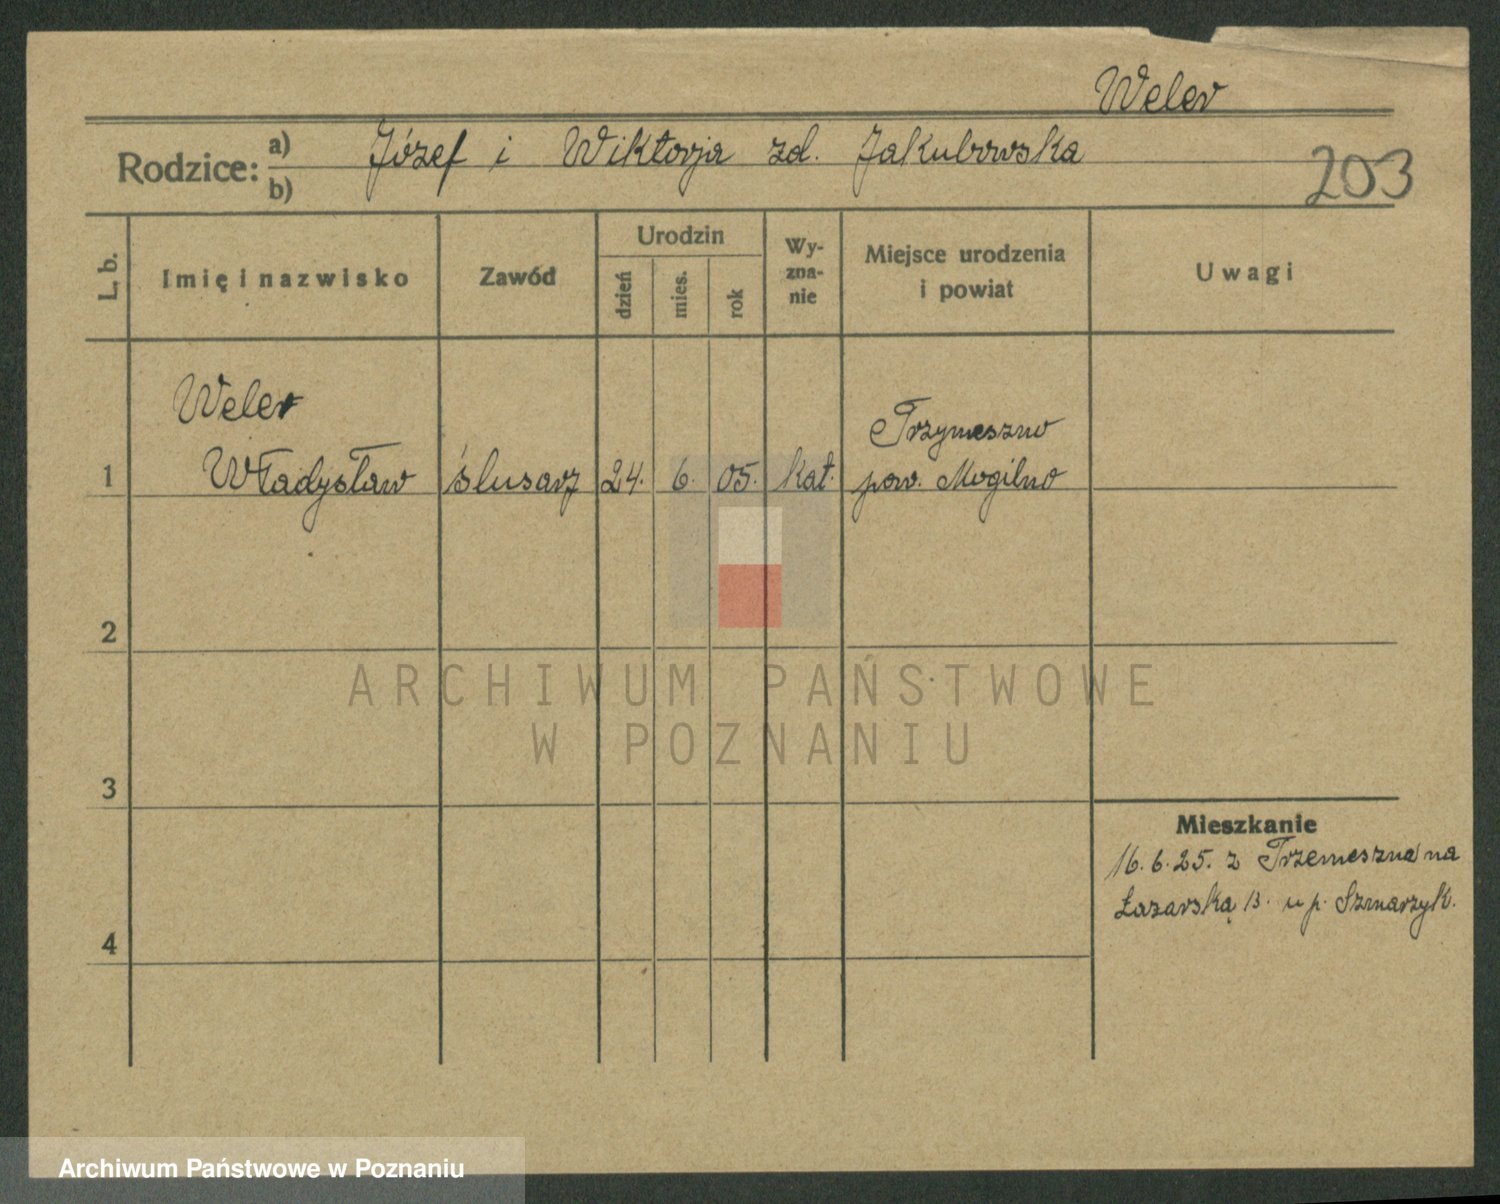 Weler
Rodzice: a) Józef i Wiktorja zd. Jakubowska
b)
203
L. b.
Imię i nazwisko
Zawód
Urodzin
dzień
mies.
rok
Wy-
zna-
nie
Miejsce urodzenia
i powiat
Uwagi
Weler
Trzymeszno
1 Władysław ślusarz 24. 6. 05. kat. pow. Mogilno
2
ARCHIWUM PAŃSTWOWE
W POZNANIU
3
Mieszkanie
16.6.25. z Trzemeszna na
Łazarską 13. u p. Szmarzyk.
4
Archiwum Państwowe w Poznaniu